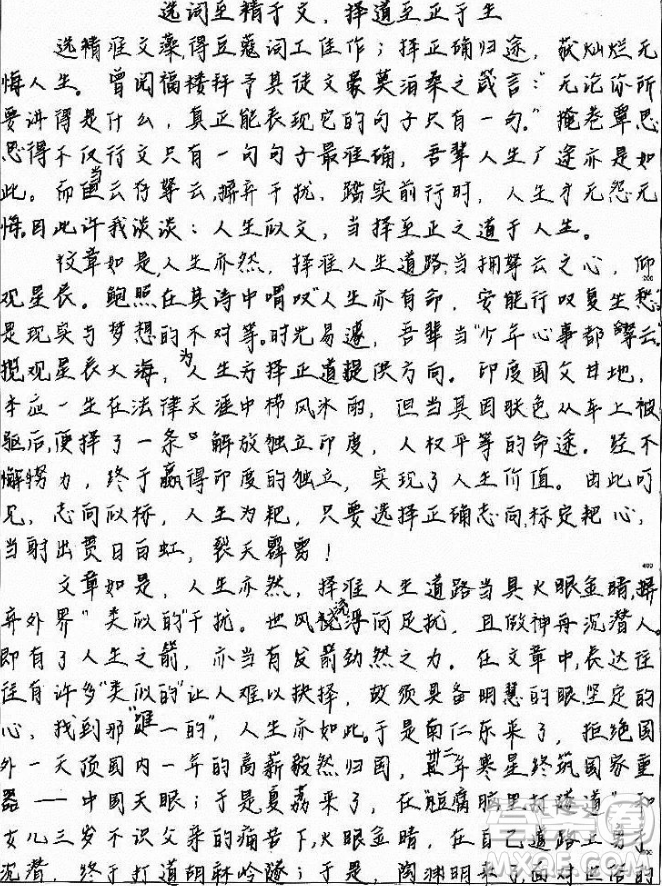 选词至精于文，择道至正于生
选精准文藻，得豆蔻词工佳作；择正确归途，获灿烂无
悔人生。曾闻福楼拜予其徒文豪莫泊桑之箴言："无论你所
要讲得是什么，真正能表现它的句子只有一句。"掩卷覃思
思得不仅行文只有一句句子最准确，吾辈人生广途亦是如
此。而当云存拏云，摒弃干扰，踏实前行时，人生才无怨无
悔。因此许我淡淡：人生似文，当择至正之道于人生。
文章如是，人生亦然，择准人生道路，当拥拏云之心，仰
观星辰。鲍照在其诗中喟叹"人生亦有命，安能行叹复坐愁"
是现实与梦想的不对等。时光易逝，吾辈当"少年心事都拏云"
揽观星辰大海，为人生方择正道提供方向。印度国父甘地，
本应一生在法律天涯中栉风沐雨，但当其因肤色从车上被
驱后，便择了一条"解放独立印度，人权平等的命途。经不
懈努力，终于赢得印度的独立，实现了人生价值。由此可
见，志向似标，人生为靶，只要选择正确志向，标定靶心，
当射出贯日白虹，裂天霹雳！
400
文章如是，人生亦然，择准人生道路当具火眼金睛，摒
弃外界"类似的"干扰。世风浮何足扰，且做神再沉潜人。
即有了人生之箭，亦当有发箭劲然之力。在文章中，表达往
往有许多"类似的"让人难以抉择，故须具备明慧的眼，坚定的
心，找到那"唯一的"，人生亦如此。于是南仁东来了，拒绝国
外一天顶国内一年的高薪毅然归国，廿二年寒星终筑国家重
器——中国天眼；于是夏荔来了，在"豆腐脑里打隧道"和
女儿三岁不识父亲的痛苦下，火眼金睛，在自己道路上勇于
沉潜，终于打道胡麻岭隧；于是，陶渊明来了面对世俗的